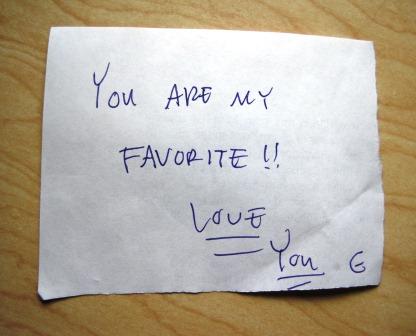 YOU ARE MY
FAVORITE!!
LOVE
YOU E